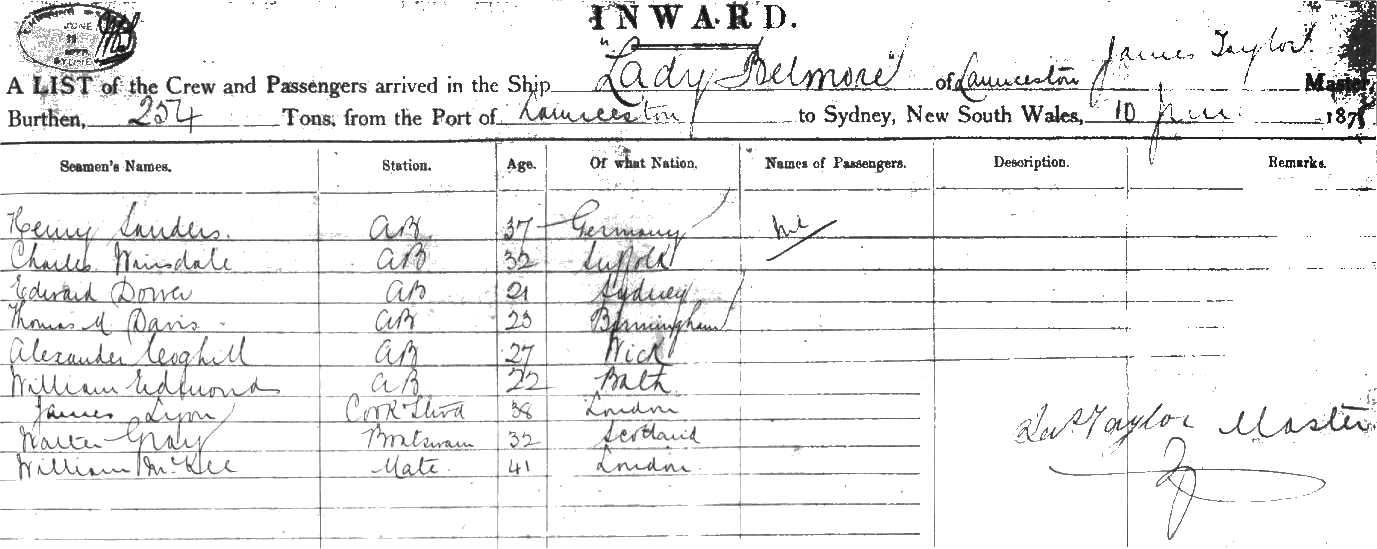 JUNE
SYDNEY
INWARD.
A LIST of the Crew and Passengers arrived in the Ship "Lady Belmore" of Launceston James Taylor Master,
Burthen, 254 Tons, from the Port of Launceston to Sydney, New South Wales, 10 June 187
Seamen's Names. Station. Age. Of what Nation. Names of Passengers. Description. Remarks.
Henry Sanders. AB 37 Germany nil
Charles Winsdale AB 32 Suffolk
Edward Dower AB 21 Sydney
Thomas M Davis AB 23 Birmingham
Alexander Coghill AB 27 Wick
William Edmonds AB 22 Bath
James Lyon Cook & Stwd 38 London
Walter Gray Boatswain 32 Scotland
William McKee Mate. 41 London.
Jas Taylor Master